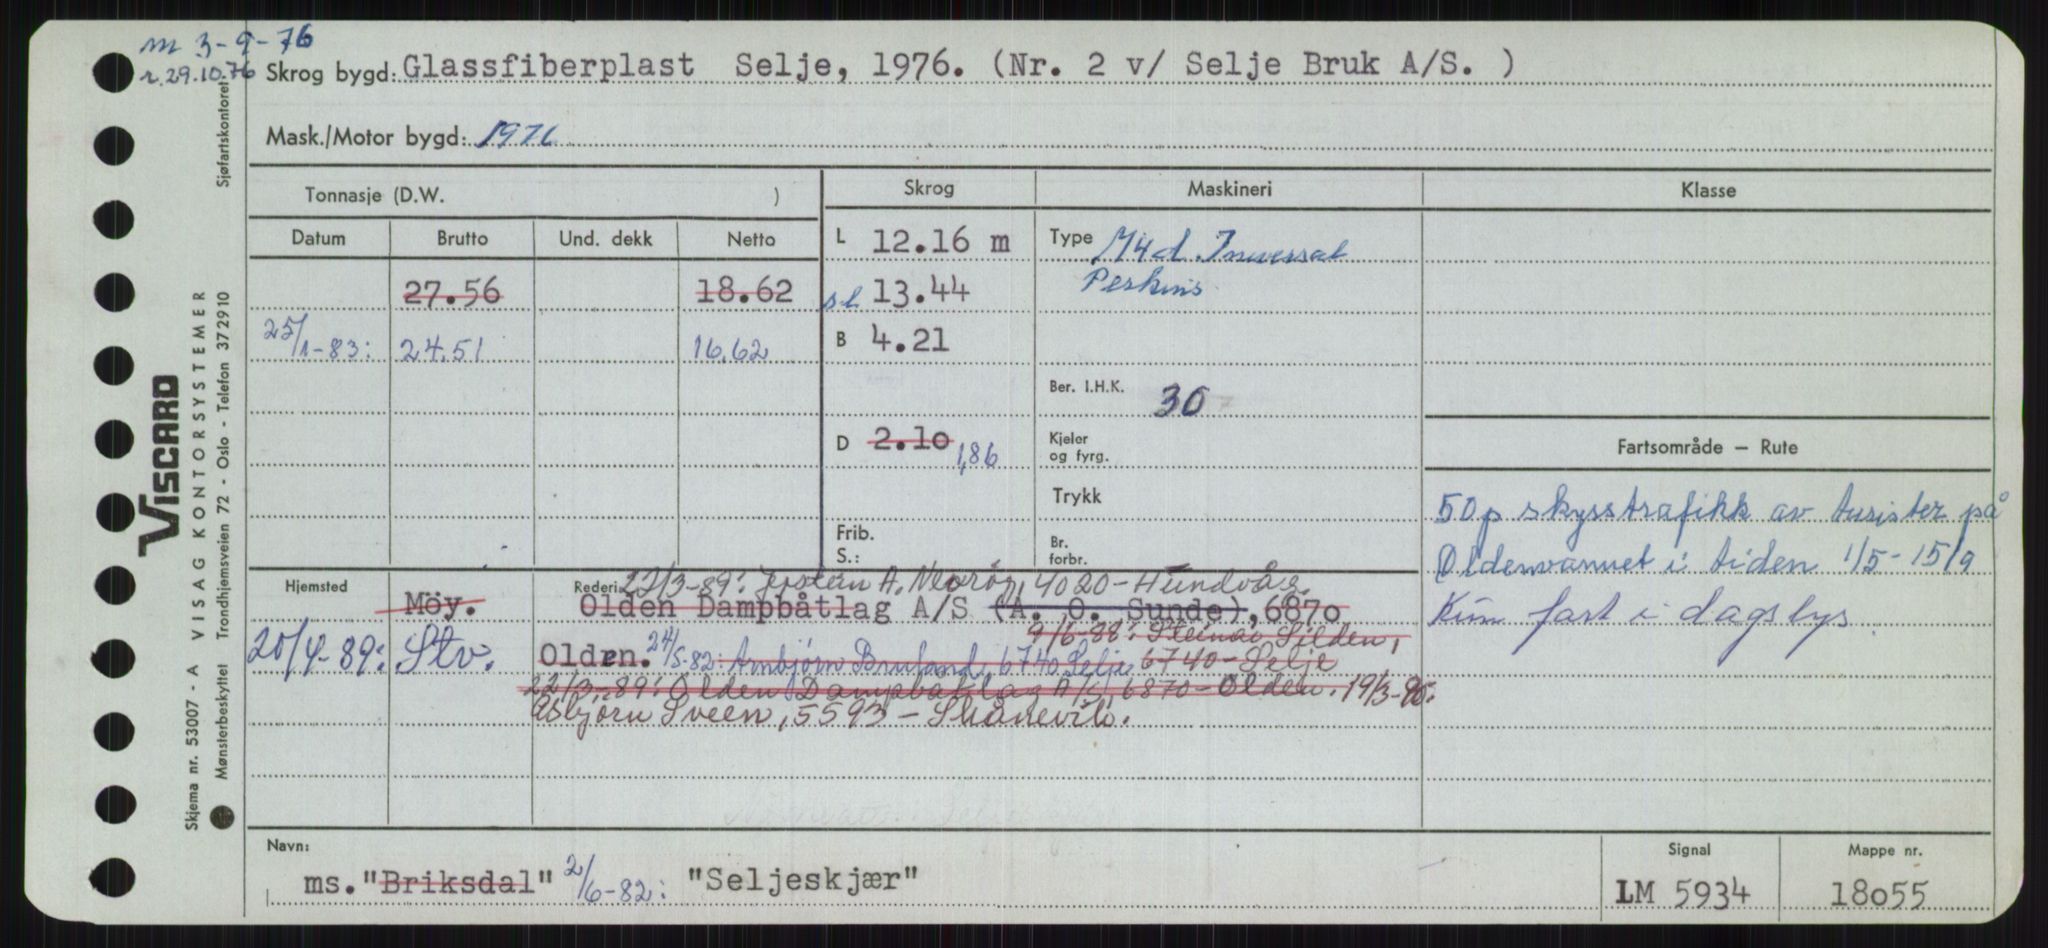 m 3-9-76
r. 29.10.76
Skrog bygd: Glassfiberplast Selje, 1976. (Nr. 2 v/ Selje Bruk A/S. )
Mask./Motor bygd: 1976
Tonnasje (D.W. )
Skrog
Maskineri
Klasse
Datum
Brutto
Und. dekk
Netto
L 12.16 m
Type M4d. Inversat
27.56
18.62
sl 13.44
Perkins
25/1-83: 24.51
16.62
B 4.21
Ber. I.H.K. 30
D 2.10 1,86
Kjeler
og fyrg.
Fartsområde — Rute
Trykk
50 p skysstrafikk av turister på
Frib.
S.:
Br.
forbr.
Oldenvannet i tiden 1/5-15/9
Kun fart i dagslys
Hjemsted
Rederi 22/3-89: A. 4020-Hundvåg.
Möy.
Olden Dampbåtlag A/S (A. O. Sunde), 6870
9/6-88: Steinar Silden,
20/4-89: Stv.
Olden. 24/5-82: Arnbjørn 6740 Selje 6740-Selje
22/3-89: Olden Dampbåtlag A/S, 6870-Olden. 19/3-90.
Asbjørn Sveen, 5593-Skånevik.
Navn:
ms. "Briksdal" 2/6-82: "Seljeskjær"
Signal
LM 5934
Mappe nr.
18055
VISCARD
Skjema nr. 53007 - A VISAG KONTORSYSTEMER
Mønsterbeskyttet Trondhjemsveien 72 - Oslo - Telefon 372910 Sjøfartskontoret